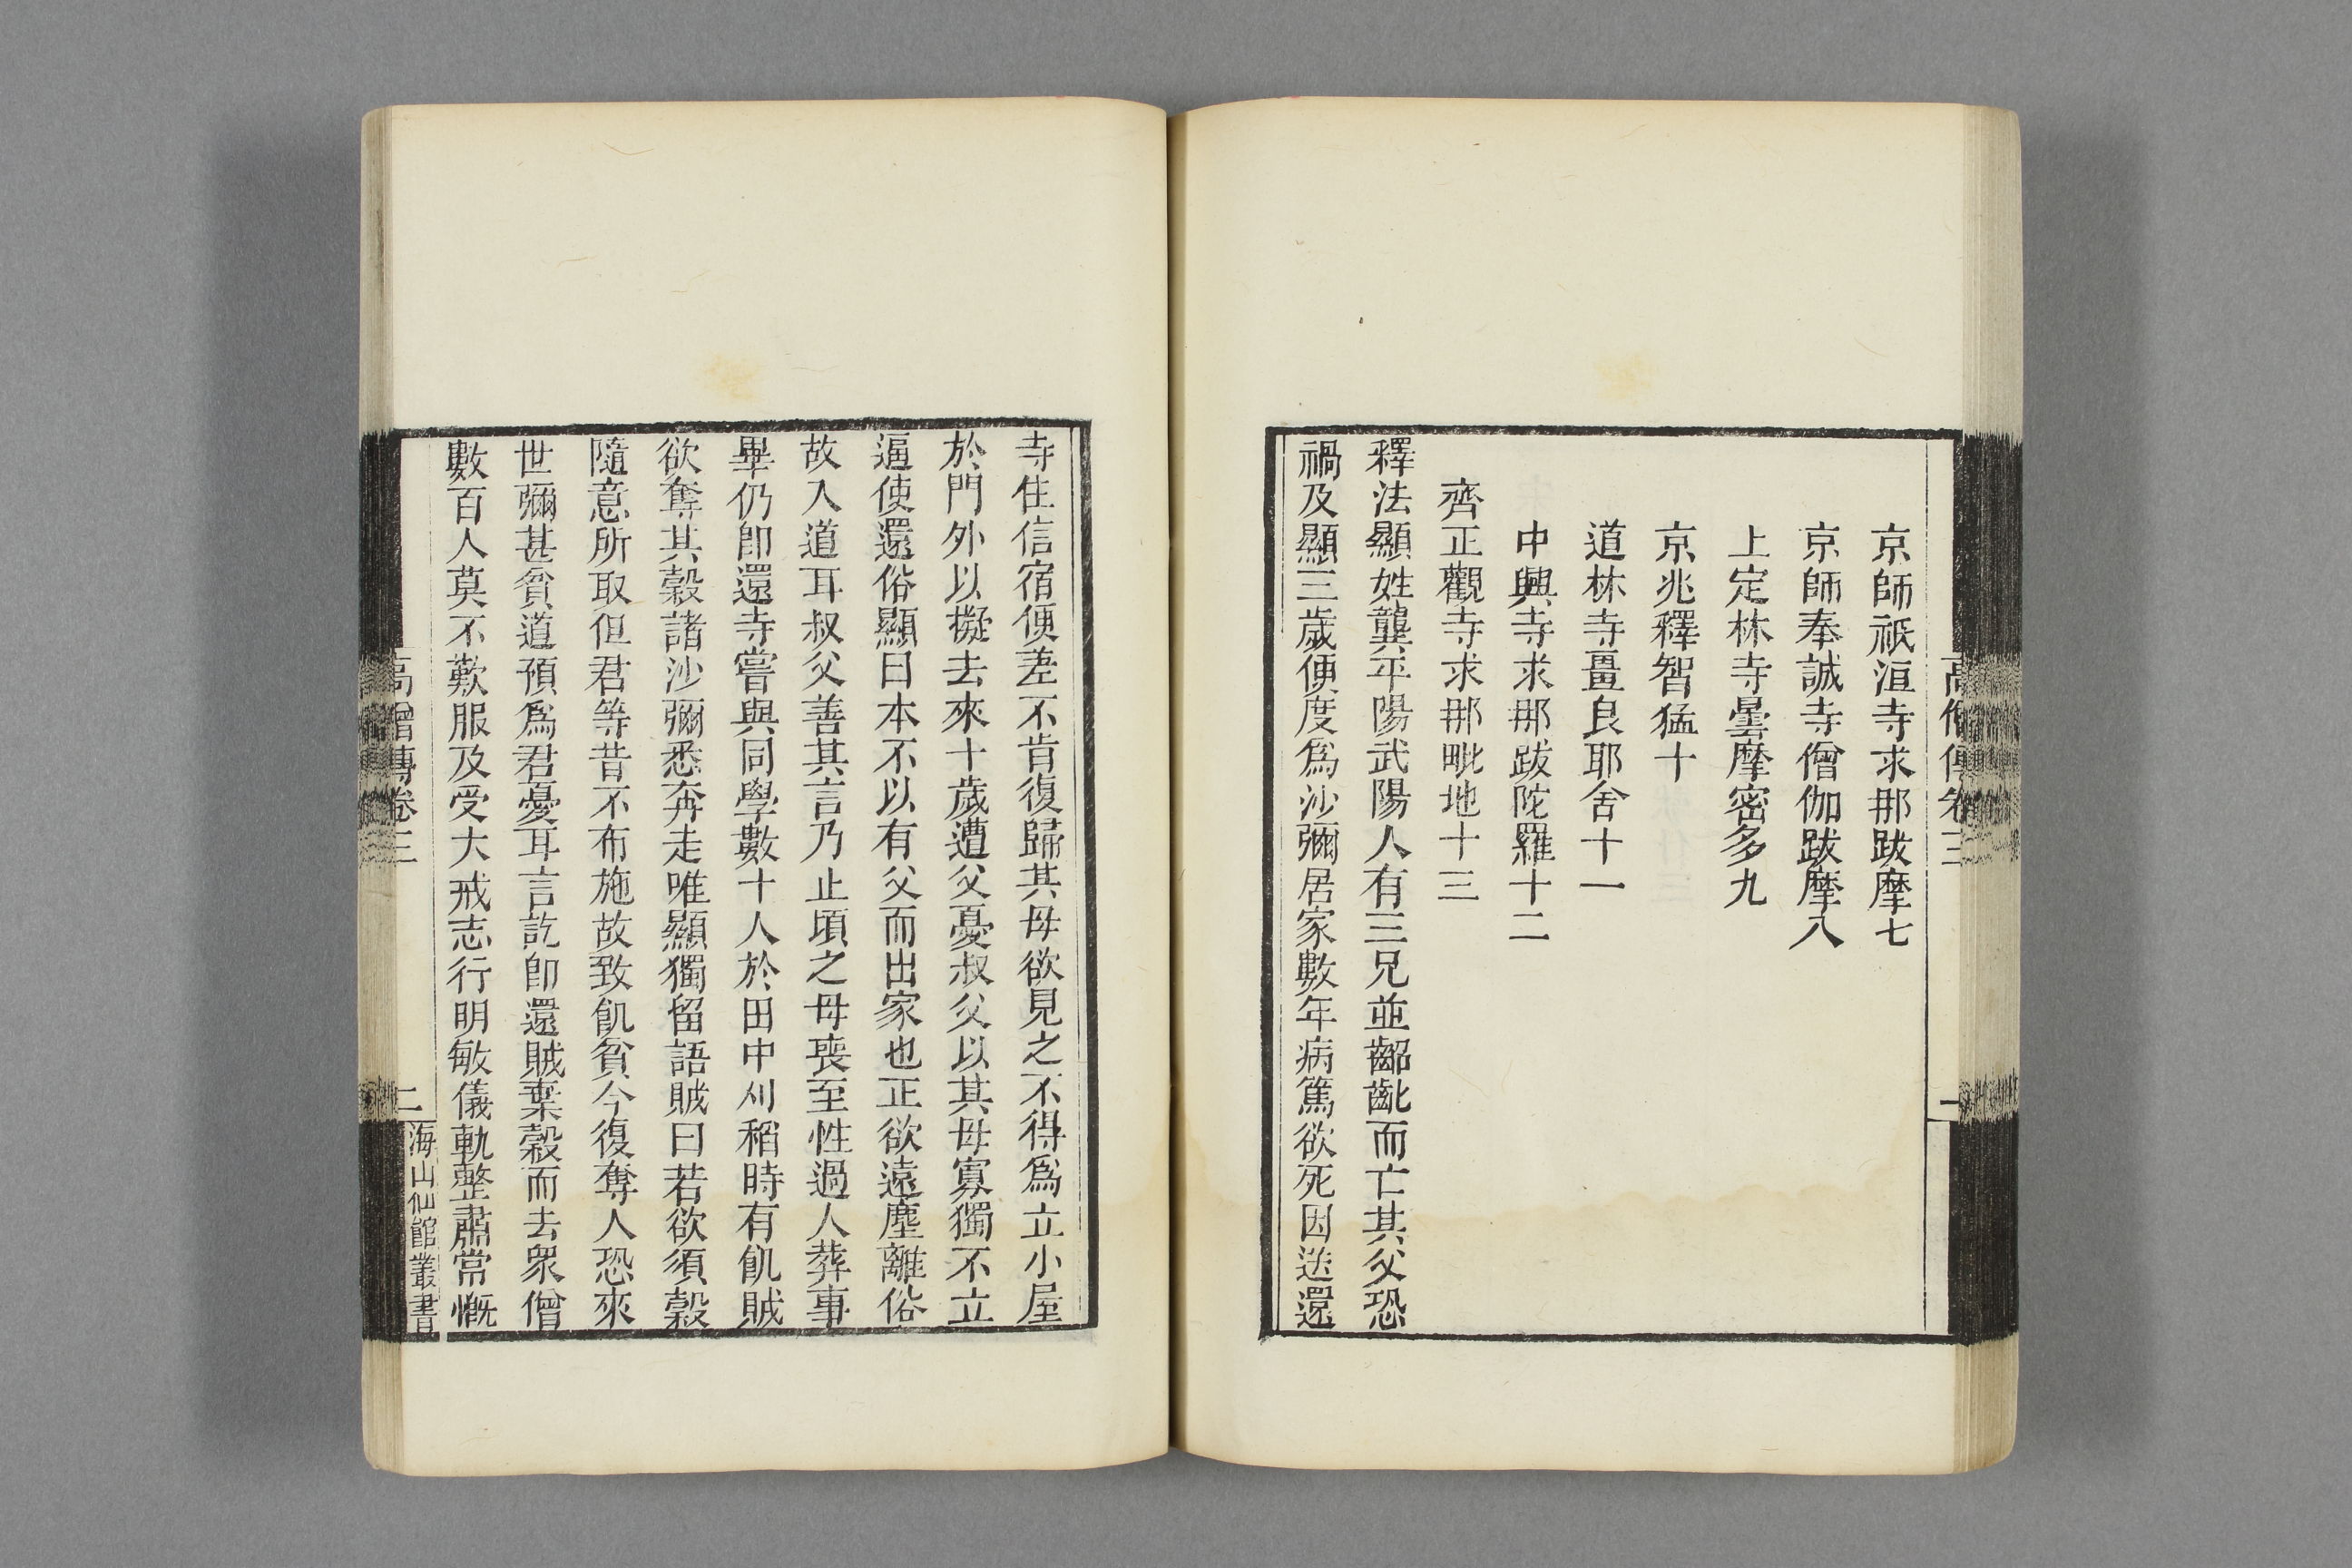 高僧傳卷三
一
京師祇洹寺求那跋摩七
京師奉誠寺僧伽跋摩八
上定林寺曇摩密多九
京兆釋智猛十
道林寺畺良耶舍十一
中興寺求那跋陀羅十二
齊正觀寺求那毗地十三
釋法顯姓龔平陽武陽人有三兄並齠齔而亡其父恐
禍及顯三歲便度爲沙彌居家數年病篤欲死因送還
寺住信宿便差不肯復歸其母欲見之不得爲立小屋
於門外以擬去來十歲遭父憂叔父以其母寡獨不立
逼使還俗顯曰本不以有父而出家也正欲遠塵離俗
故入道耳叔父善其言乃止頃之母喪至性過人葬事
畢仍卽還寺嘗與同學數十人於田中刈稻時有飢賊
欲奪其穀諸沙彌悉奔走唯顯獨留語賊曰若欲須穀
隨意所取但君等昔不布施故致飢貧今復奪人恐來
世彌甚貧道預爲君憂耳言訖卽還賊棄穀而去衆僧
數百人莫不歎服及受大戒志行明敏儀軌整肅常慨
高僧傳卷三
二
海山仙館叢書